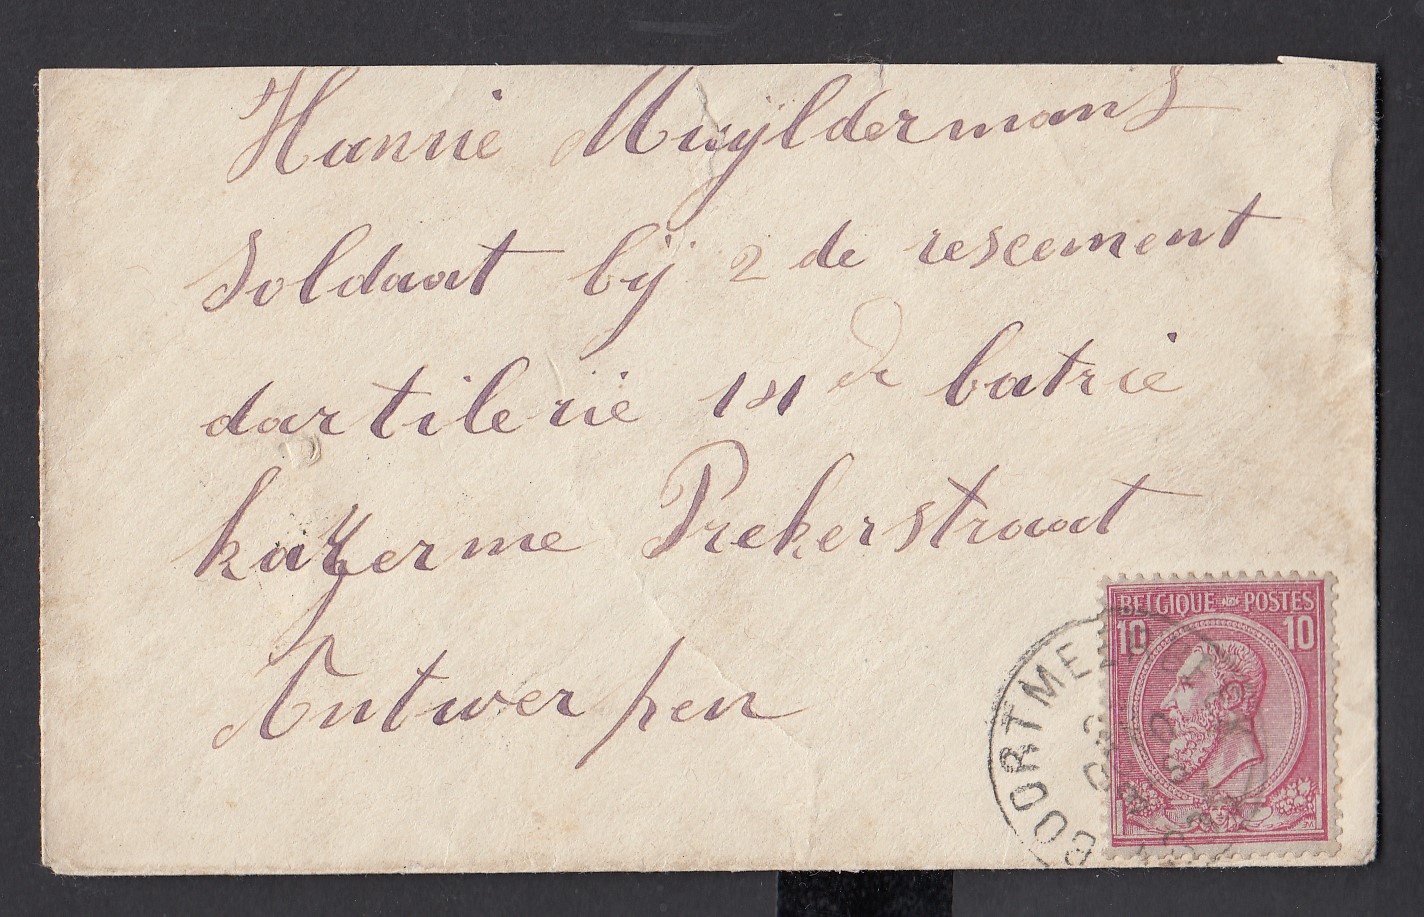 Hannie Muÿldermans
Soldaat bij 2 de rescement
dartilerie 141 de batrie
kazerme Prekerstraat
Antwerpen
BELGIQUE POSTES
10 10
COORTMEE